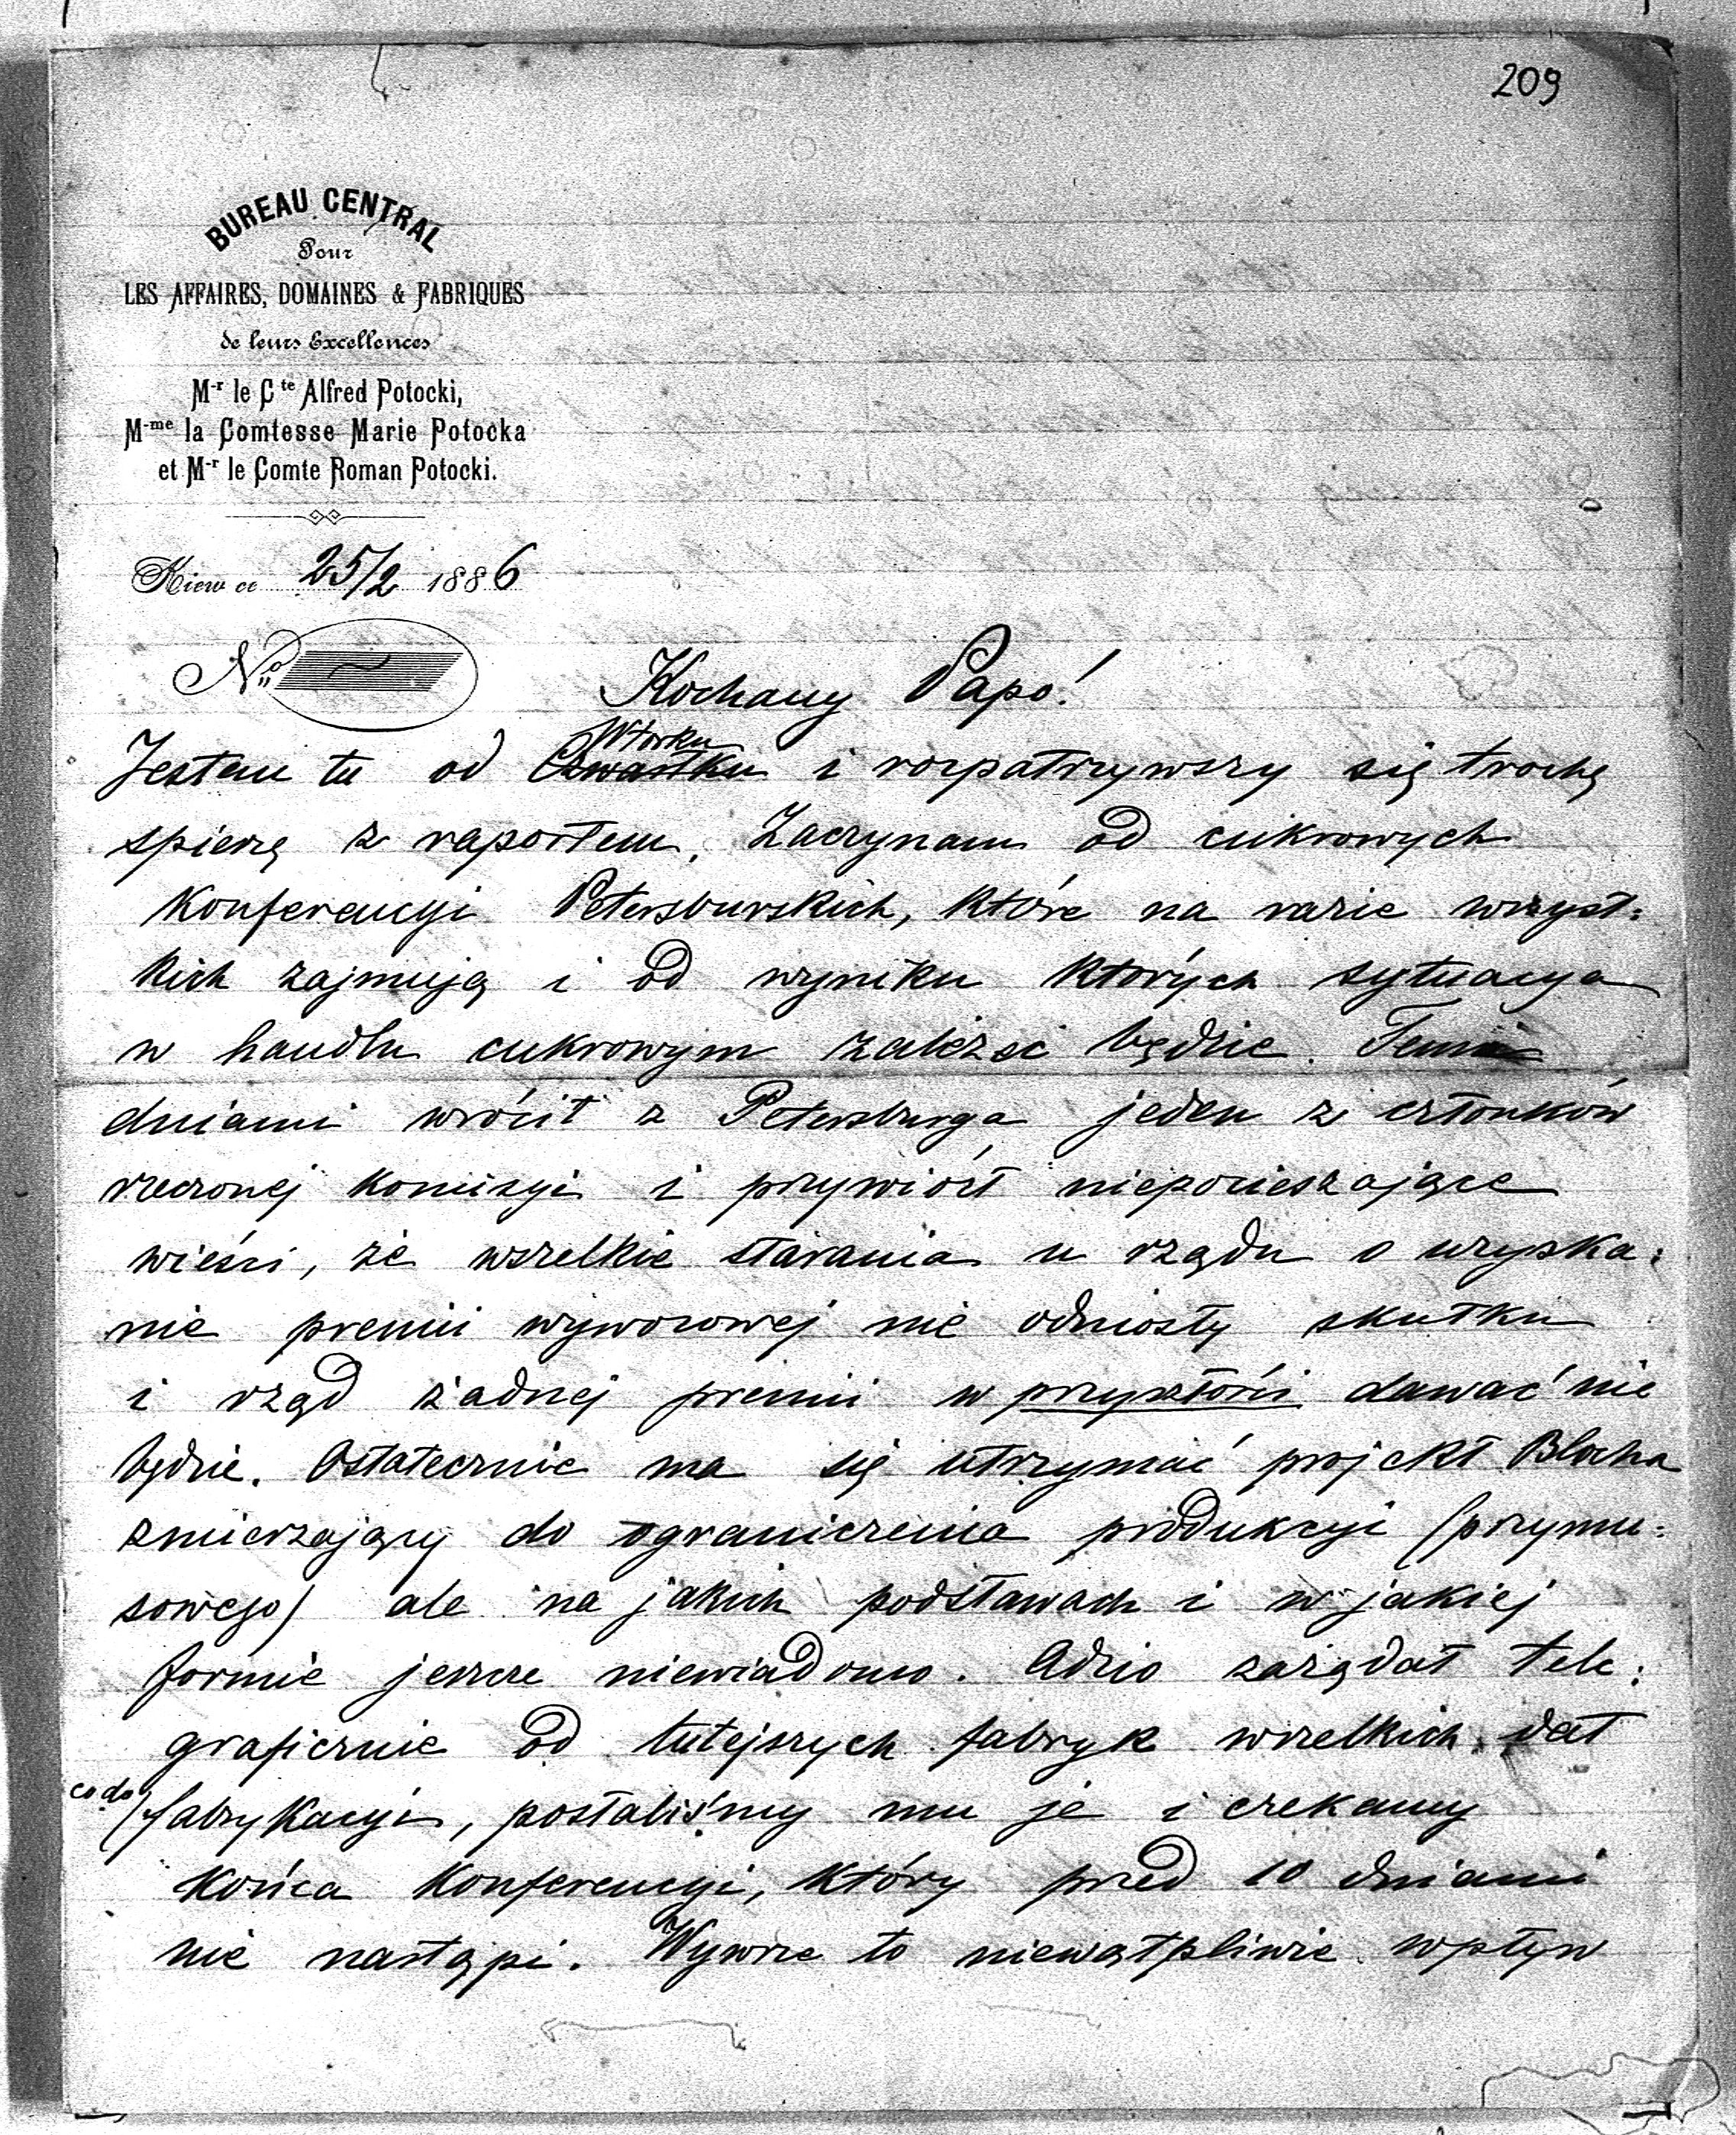 209
BUREAU CENTRAL
Pour
LES AFFAIRES, DOMAINES & FABRIQUES
de leurs Excellences
M-r le Cte Alfred Potocki,
M-me la Comtesse Marie Potocka
et M-r le Comte Roman Potocki.
Kiew ce 25/2 1886
No
Kochany Papo!
Wtorku
Jestem tu od Czwartku i rozpatrzywszy się trochę
spieszę z raportem. Zaczynam od cukrowych
Konferencyi Petersburskich, które na razie wszyst=
kich zajmują i od wyniku których sytuacya
w handlu cukrowym zależeć będzie. Temi
dniami wrócił z Petersburga jeden z członków
rzeczonej Komisyi i przywiózł niepocieszające
wieści, że wszelkie starania u rządu o uzyska=
nie premii wywozowej nie odniosły skutku
i rząd żadnej premii w przyszłości dawać nie
będzie. Ostatecznie ma się utrzymać projekt Blocha
zmierzający do ograniczenia produkcyi (przymu=
sowego) ale na jakich podstawach i w jakiej
formie jeszcze niewiadomo. Adzio zażądał tele=
graficznie od tutejszych fabryk wszelkich dat
co do
fabrykacyi, posłaliśmy mu je i czekamy
Końca Konferencyi, który przed 10 dniami
nie nastąpi. Wywrze to niewątpliwie wpływ